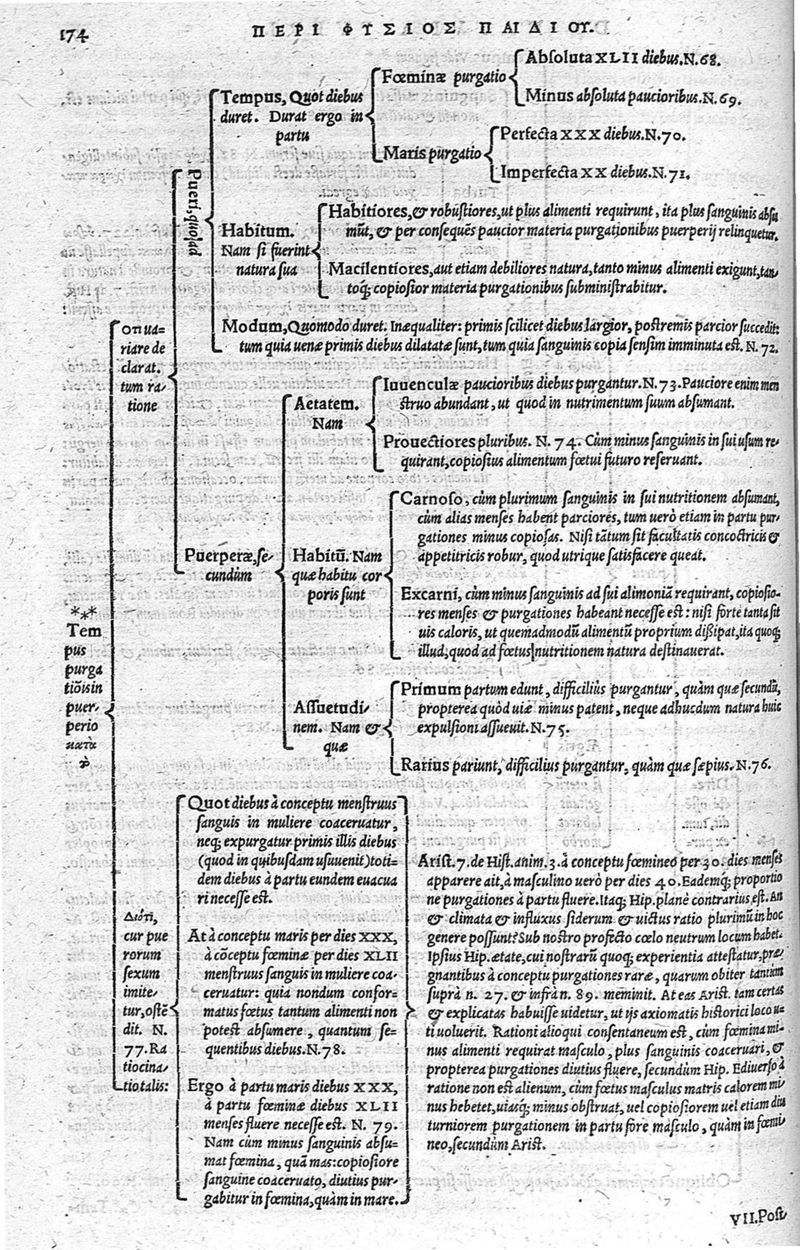 174
ΠΕΡΙ ΦΥΣΙΟΣ ΠΑΙΔΙΟΥ.
⁎⁎⁎
Tem
pus
purga
tiōis in
puer-
perio
κατὰ
ὅτι ua-
riare de
clarat.
tum ra-
tione
Pueri, quoad
Tempus, Quot diebus
duret. Durat ergo in
partu
Fœminæ purgatio
Absoluta XLII diebus. N. 68.
Minus absoluta paucioribus. N. 69.
Maris purgatio
Perfecta XXX diebus. N. 70.
Imperfecta XX diebus. N. 71.
Habitum.
Nam si fuerint
natura sua
Habitiores, & robustiores, ut plus alimenti requirunt, ita plus sanguinis absu
mūt, & per consequēs paucior materia purgationibus puerperij relinquetur.
Macilentiores, aut etiam debiliores natura, tanto minus alimenti exigunt, tan-
toq; copiosior materia purgationibus subministrabitur.
Modum, Quomodo duret. Inæqualiter: primis scilicet diebus largior, postremis parcior succedit:
tum quia uenæ primis diebus dilatatæ sunt, tum quia sanguinis copia sensim imminuta est. N. 72.
Puerperæ, se-
cundum
Aetatem.
Nam
Iuuenculæ paucioribus diebus purgantur. N. 73. Pauciore enim men
struo abundant, ut quod in nutrimentum suum absumant.
Prouectiores pluribus. N. 74. Cùm minus sanguinis in sui usum re-
quirant, copiosius alimentum fœtui futuro reseruant.
Habitū. Nam
quæ habitu cor
poris sunt
Carnoso, cùm plurimum sanguinis in sui nutritionem absumant,
cùm alias menses habent parciores, tum uerò etiam in partu pur-
gationes minus copiosas. Nisi tātum sit facultatis concoctricis &
appetitricis robur, quod utrique satisfacere queat.
Excarni, cùm minus sanguinis ad sui alimoniā requirant, copiosio-
res menses & purgationes habeant necesse est: nisi forte tanta sit
uis caloris, ut quemadmodū alimentū proprium dißipat, ita quoq;
illud, quod ad fœtus nutritionem natura destinauerat.
Assuetudi-
nem. Nam &
quæ
Primum partum edunt, difficilius purgantur, quàm quæ secundū,
propterea quòd uiæ minus patent, neque adhucdum natura huic
expulsioni assueuit. N. 75.
Rarius pariunt, difficilius purgantur, quàm quæ sæpius. N. 76.
Διότι,
cur pue
rorum
sexum
imite-
tur, ostē
dit. N.
77. Ra
tiocina-
tio talis:
Quot diebus à conceptu menstruus
sanguis in muliere coaceruatur,
neq; expurgatur primis illis diebus
(quod in quibusdam usuuenit) toti-
dem diebus à partu eundem euacua
ri necesse est.
At à conceptu maris per dies XXX,
à cōceptu fœminæ per dies XLII
menstruus sanguis in muliere coa-
ceruatur: quia nondum confor-
matus fœtus tantum alimenti non
potest absumere, quantum se-
quentibus diebus. N. 78.
Ergo à partu maris diebus XXX,
à partu fœminæ diebus XLII
menses fluere necesse est. N. 79.
Nam cùm minus sanguinis absu-
mat fœmina, quā mas: copiosiore
sanguine coaceruato, diutius pur-
gabitur in fœmina, quàm in mare.
Arist. 7. de Hist. anim. 3. à conceptu fœmineo per 30. dies menses
apparere ait, à masculino uerò per dies 40. Eademq; proportio
ne purgationes à partu fluere. Itaq; Hip. planè contrarius est. An
& climata & influxus siderum & uictus ratio plurimū in hoc
genere possunt? Sub nostro profecto cœlo neutrum locum habet.
Ipsius Hip. ætate, cui nostrarū quoq; experientia attestatur, præ
gnantibus à conceptu purgationes raræ, quarum obiter tantum
suprà n. 27. & infrà n. 89. meminit. At eas Arist. tam certas
& explicatas habuisse uidetur, ut ijs axiomatis historici loco u-
ti uoluerit. Rationi alioqui consentaneum est, cùm fœmina mi-
nus alimenti requirat masculo, plus sanguinis coaceruari, &
propterea purgationes diutius fluere, secundùm Hip. Ediuerso à
ratione non est alienum, cùm fœtus masculus matris calorem mi
nus hebetet, uiasq; minus obstruat, uel copiosiorem uel etiam diu
turniorem purgationem in partu fore masculo, quàm in fœmi
neo, secundùm Arist.
VII. Post